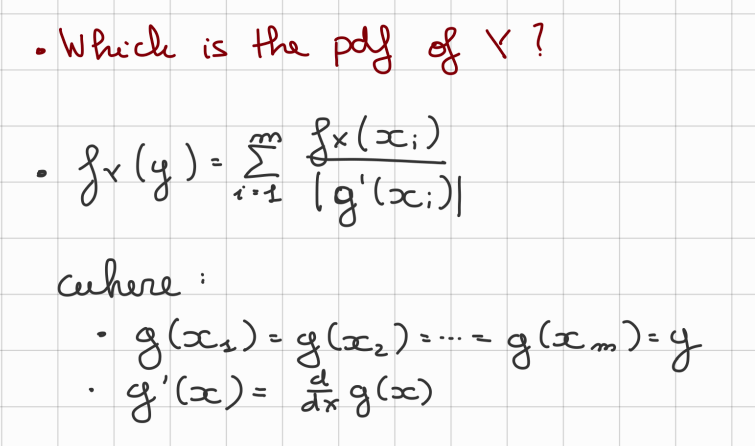 • Which is the pdf of Y?
• f_Y(y) = ∑_{i=1}^{m} f_X(x_i) / |g'(x_i)|
where:
• g(x_1) = g(x_2) = ... = g(x_m) = y
• g'(x) = d/dx g(x)